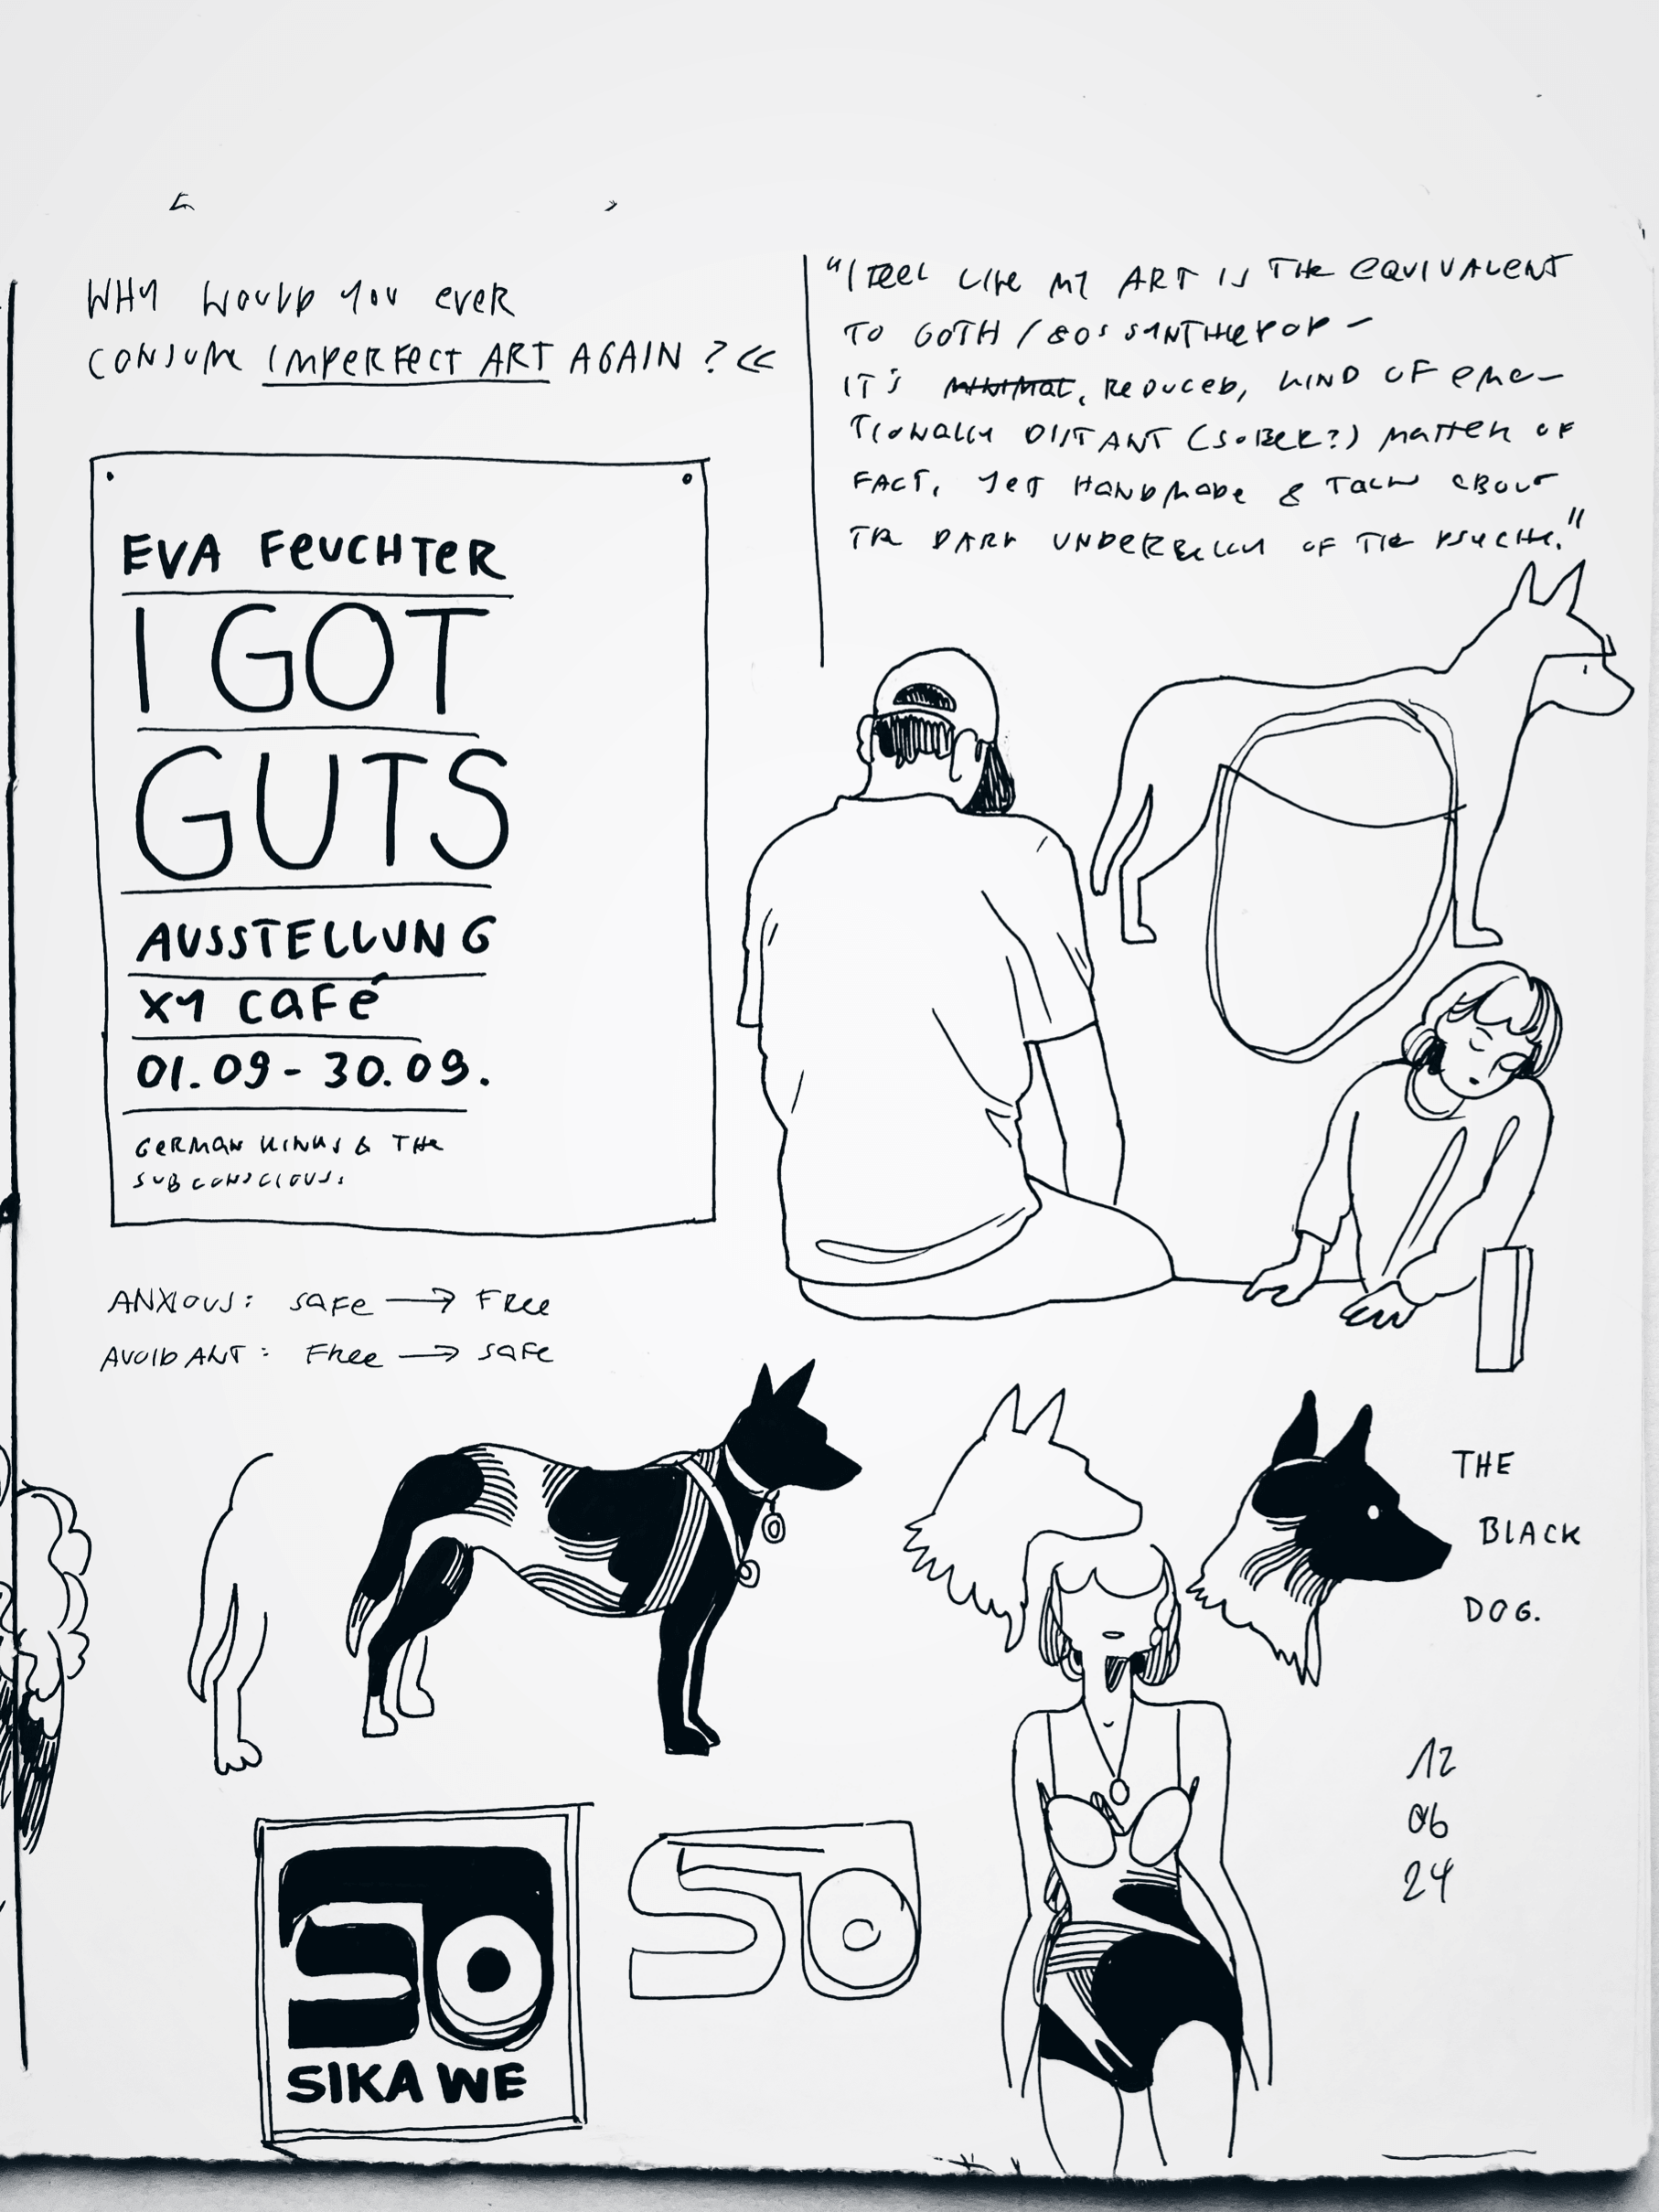 WHY WOULD YOU EVER
CONSUME IMPERFECT ART AGAIN? <<
"I FEEL LIKE MY ART IS THE EQUIVALENT
TO GOTH / 80s SYNTHIEPOP –
IT'S MINIMAL, REDUCED, KIND OF EMO-
TIONALLY DISTANT (SOBER?) MATTER OF
FACT, YET HANDMADE & TALKS ABOUT
THE DARK UNDERBELLY OF THE PSYCHE."
EVA FEUCHTER
I GOT
GUTS
AUSSTELLUNG
XY CAFÉ
01.09 - 30.09.
GERMAN KINKS & THE
SUBCONSCIOUS.
ANXIOUS: SAFE → FREE
AVOIDANT: FREE → SAFE
THE
BLACK
DOG.
12
06
24
SO
SIKA WE
SO